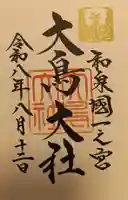 和泉國一之宮
大鳥大社
令和八年八月十二日